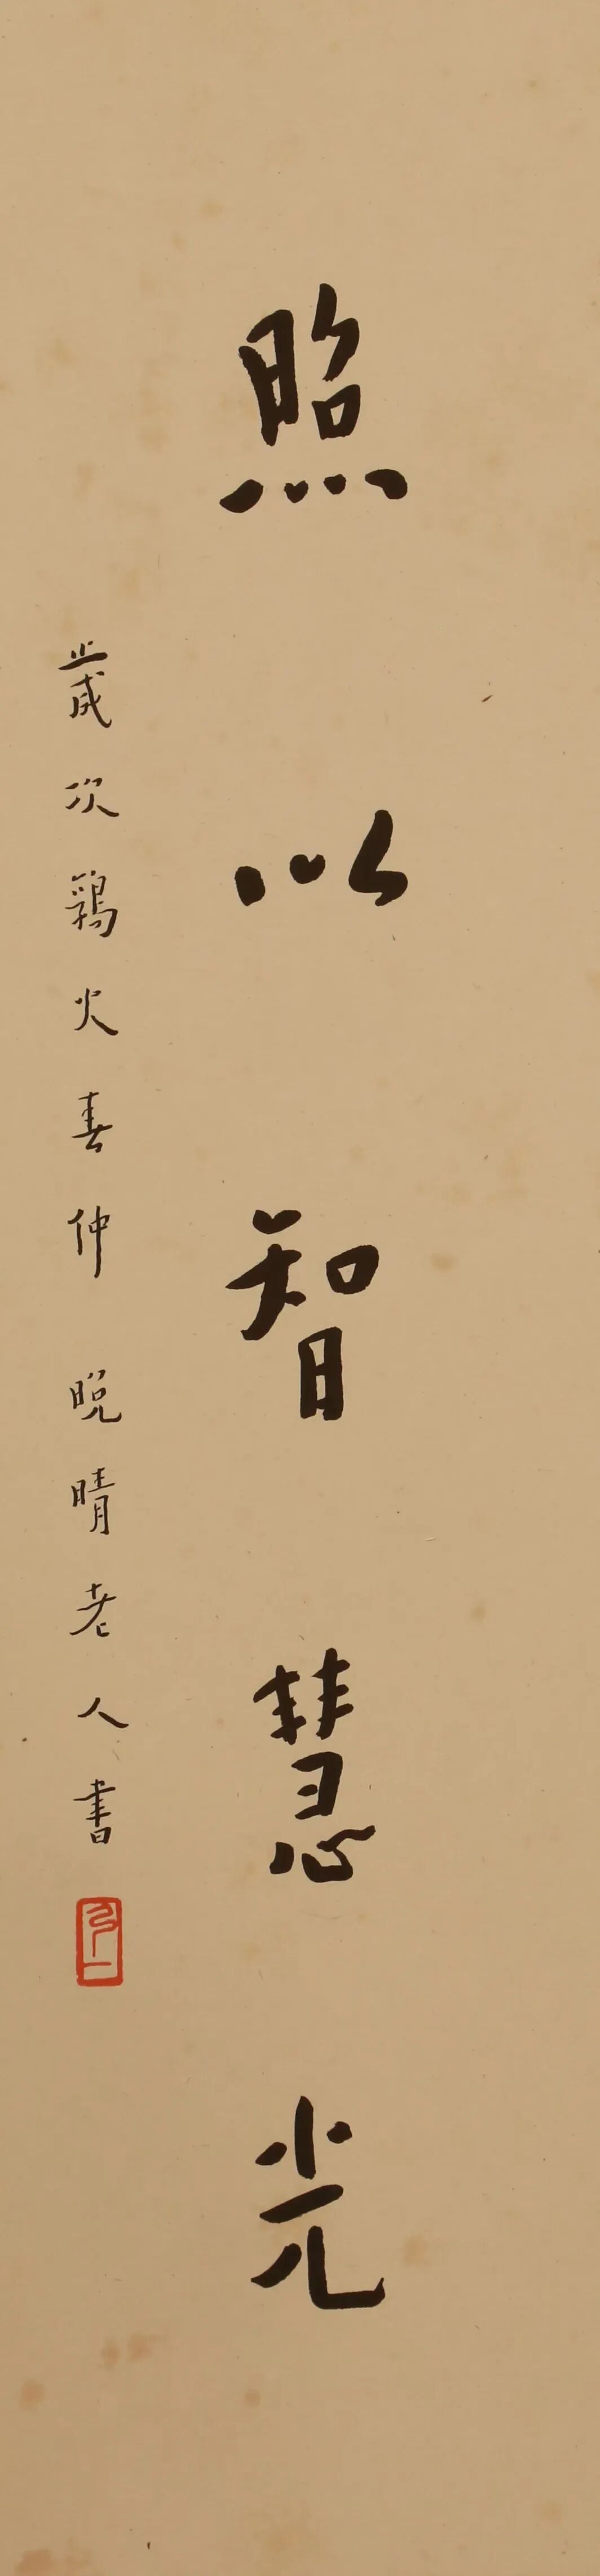 照以智慧光
歲次鶉火春仲 晚晴老人書
弘一